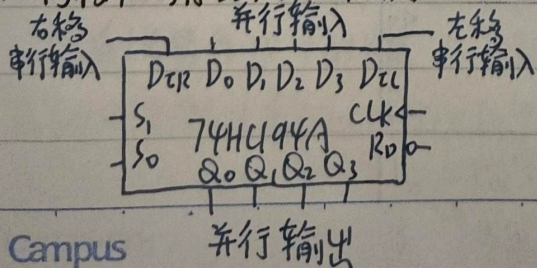 右移
串行输入
并行输入
左移
串行输入
DIR D0 D1 D2 D3 DIL
S1
74HC194A
CLK
S0
RD
Q0 Q1 Q2 Q3
并行输出
Campus